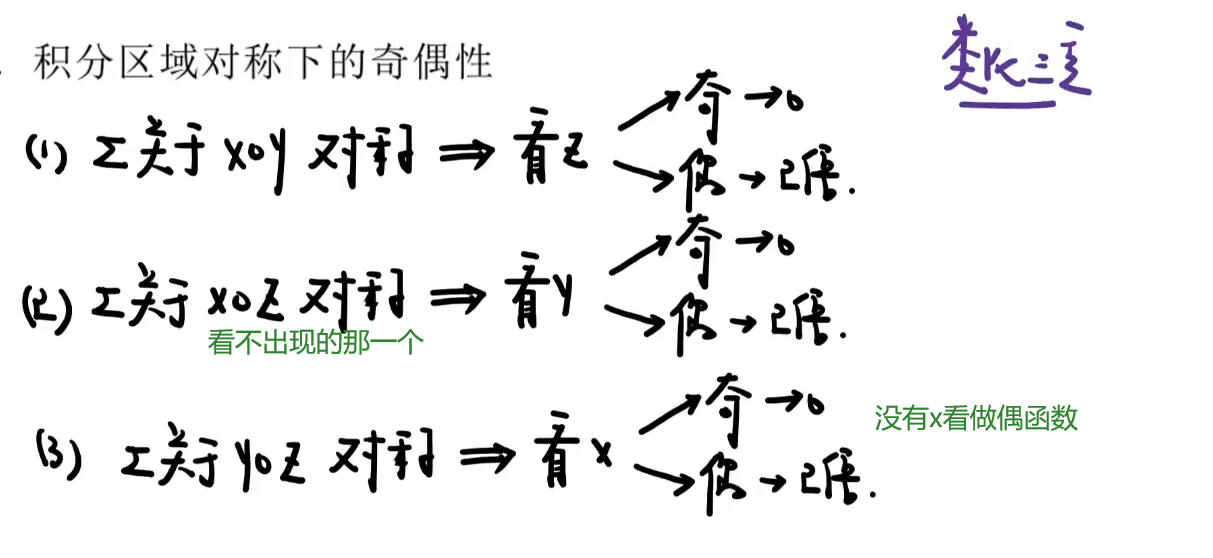 积分区域对称下的奇偶性
类似三重
(1) Σ关于xoy对称 ⇒ 看z → 奇 → 0
→ 偶 → 2倍.
(2) Σ关于xoz对称 ⇒ 看y → 奇 → 0
→ 偶 → 2倍.
看不出现的那一个
(3) Σ关于yoz对称 ⇒ 看x → 奇 → 0
→ 偶 → 2倍.
没有x看做偶函数